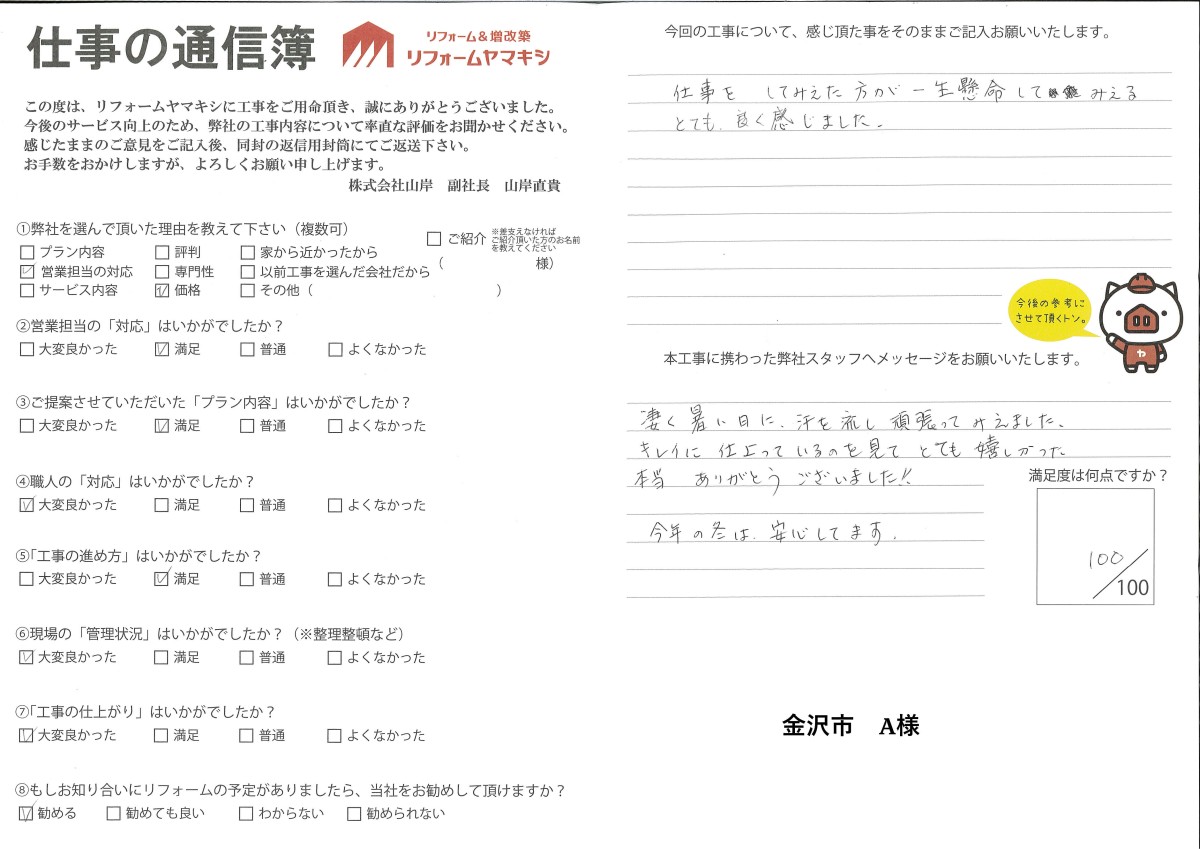 仕事の通信簿
リフォーム&増改築
リフォームヤマキシ
この度は、リフォームヤマキシに工事をご用命頂き、誠にありがとうございました。
今後のサービス向上のため、弊社の工事内容について率直な評価をお聞かせください。
感じたままのご意見をご記入後、同封の返信用封筒にてご返送下さい。
お手数をおかけしますが、よろしくお願い申し上げます。
株式会社山岸 副社長 山岸直貴
①弊社を選んで頂いた理由を教えて下さい（複数可）
□プラン内容 □評判 □家から近かったから
☑営業担当の対応 □専門性 □以前工事を選んだ会社だから
□サービス内容 ☑価格 □その他（ ）
□ご紹介 ※差支えなければ
ご紹介頂いた方のお名前
を教えてください
（ 様）
②営業担当の「対応」はいかがでしたか？
□大変良かった ☑満足 □普通 □よくなかった
③ご提案させていただいた「プラン内容」はいかがでしたか？
□大変良かった ☑満足 □普通 □よくなかった
④職人の「対応」はいかがでしたか？
☑大変良かった □満足 □普通 □よくなかった
⑤「工事の進め方」はいかがでしたか？
□大変良かった ☑満足 □普通 □よくなかった
⑥現場の「管理状況」はいかがでしたか？（※整理整頓など）
☑大変良かった □満足 □普通 □よくなかった
⑦「工事の仕上がり」はいかがでしたか？
☑大変良かった □満足 □普通 □よくなかった
⑧もしお知り合いにリフォームの予定がありましたら、当社をお勧めして頂けますか？
☑勧める □勧めても良い □わからない □勧められない
今回の工事について、感じ頂た事をそのままご記入お願いいたします。
仕事を してみえた方が一生懸命して みえる
とても、良く感じました。
今後の参考に
させて頂くトン。
ヤ
本工事に携わった弊社スタッフへメッセージをお願いいたします。
凄く暑い日に、汗を流し頑張ってみえました、
キレイに仕上っているのを見てとても嬉しかった
本当 ありがとう ございました!!
今年の冬は、安心してます.
満足度は何点ですか？
100/100
金沢市 A様